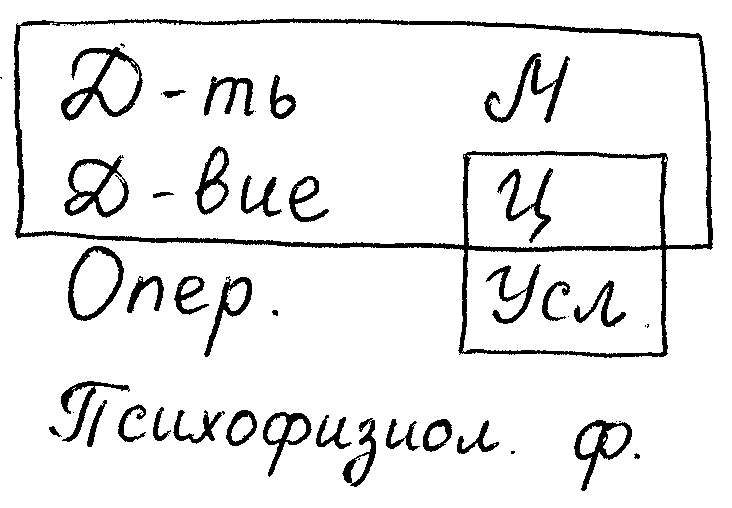 Д-ть М
Д-вие Ц
Опер. Усл.
Психофизиол. ф.